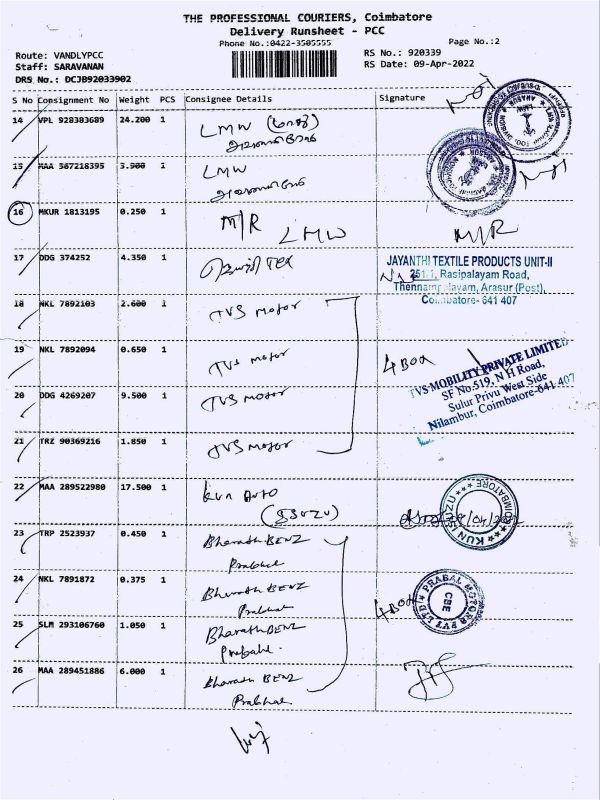 THE PROFESSIONAL COURIERS, Coimbatore
Delivery Runsheet - PCC
Phone No.:0422-3505555
Page No.:2
Route: VANDLYPCC
RS No.: 920339
Staff: SARAVANAN
RS Date: 09-Apr-2022
DRS No.: DCJB92033902
S No Consignment No Weight PCS Consignee Details Signature
14 VPL 928383689 24.200 1 LMW
15 MAA 567218395 3.900 1 LMW
16 MKUR 1813195 0.250 1 M/R LMW M/R
17 DDG 374252 4.350 1 TEX
JAYANTHI TEXTILE PRODUCTS UNIT-II
251/1, Rasipalayam Road,
Thennampalayam, Arasur (Post),
Coimbatore- 641 407
18 NKL 7892103 2.600 1 TVS Motor
19 NKL 7892094 0.650 1 TVS Motor 4 BOX
TVS MOBILITY PRIVATE LIMITED
SF No.519, N H Road,
Sulur Privu West Side
Nilambur, Coimbatore-641 407
20 DDG 4269207 9.500 1 TVS Motor
21 TRZ 90369216 1.850 1 TVS Motor
22 MAA 289522980 17.500 1 KUN AUTO
(ISUZU)
KUN ISUZU COIMBATORE
23 TRP 2523937 0.450 1 Bharath BENZ
Prabhal
24 NKL 7891872 0.375 1 Bharath BENZ
Prabhal
4 BOX
PRABAL MOTORS PVT LTD
CBE
25 SLM 293106760 1.050 1 Bharath BENZ
Prabhal
26 MAA 289451886 6.000 1 Bharath BENZ
Prabhal